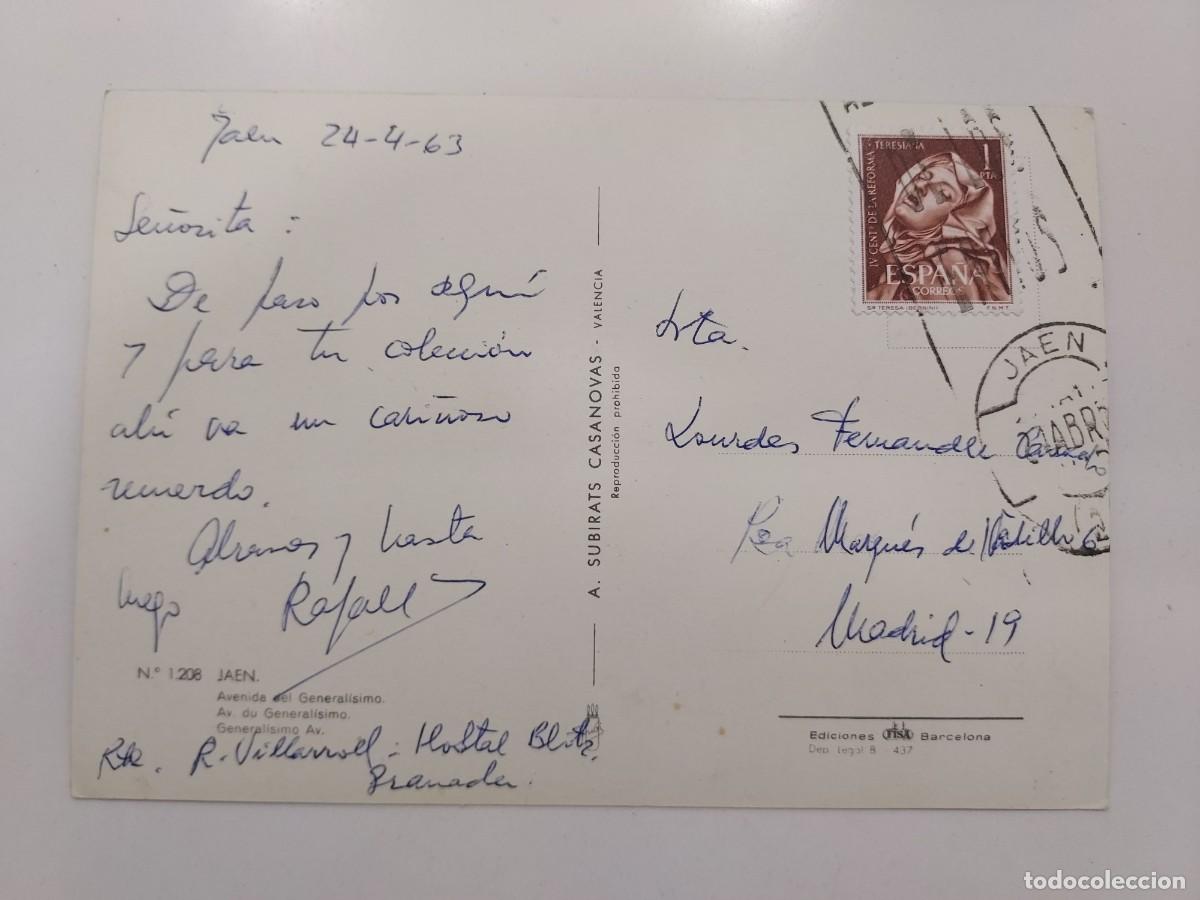 Jaen 24-4-63
Señorita :
De paso por aquí
y para tu colección
ahí va un cariñoso
recuerdo.
Abrazos y hasta
luego Rafael
N.º 1.208 JAEN.
Avenida del Generalísimo.
Av. du Generalísimo.
Generalísimo Av.
Rte. R. Villarroel - Hostal Blitz
Granada.
A. SUBIRATS CASANOVAS - VALENCIA
Reproducción prohibida
IV CENTº DE LA REFORMA TERESIANA
1 PTA
ESPAÑA
CORREOS
STA TERESA (BERNINI) F.N.M.T.
JAEN
ABR
Srta.
Lourdes Fernandez
Pza Marqués de Vadillo 6
Madrid - 19
Ediciones FISA Barcelona
Dep. Legal B. - 437
todocoleccion